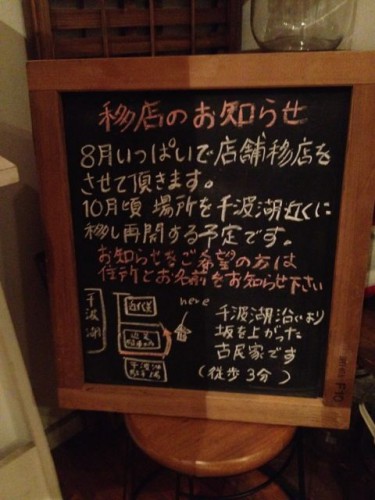 移店のお知らせ
8月いっぱいで店舗移店を
させて頂きます。
10月頃 場所を千波湖近くに
移し再開する予定です。
お知らせをご希望の方は
住所とお名前をお知らせ下さい
here
千波湖
千波湖沿いより
坂を上がった
古民家です
(徒歩3分)